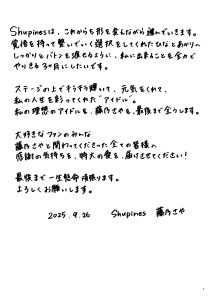 Shupinesは、これからも形を変えながら進んでいきます。
覚悟を持って繋いでいく選択をしてくれたひなとあかりへ
しっかりとバトンを渡せるように、私に出来ることを全力で
やりきる3ヶ月にしたいです。
ステージの上でキラキラ輝いて、元気をくれて、
私の人生を彩ってくれた"アイドル"。
私の理想のアイドルを、藤乃さやを、最後まで全うします。
大好きなファンのみんな
藤乃さやと関わってくださった全ての皆様へ
感謝の気持ちを、特大の愛を、届けさせてください!
最後まで一生懸命頑張ります。
よろしくお願いします。
2025.9.26 Shupines 藤乃さや